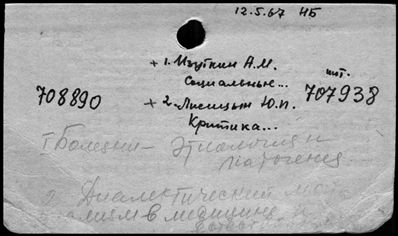 12.5.67 НБ
+ 1. Изуткин А.М. шт.
Социальные...
708890 + 2. Лисицын Ю.П. 707938
Критика...
1 Болезни — Этиология и
патогенез
2 Диалектический мате
риализм в медицине и